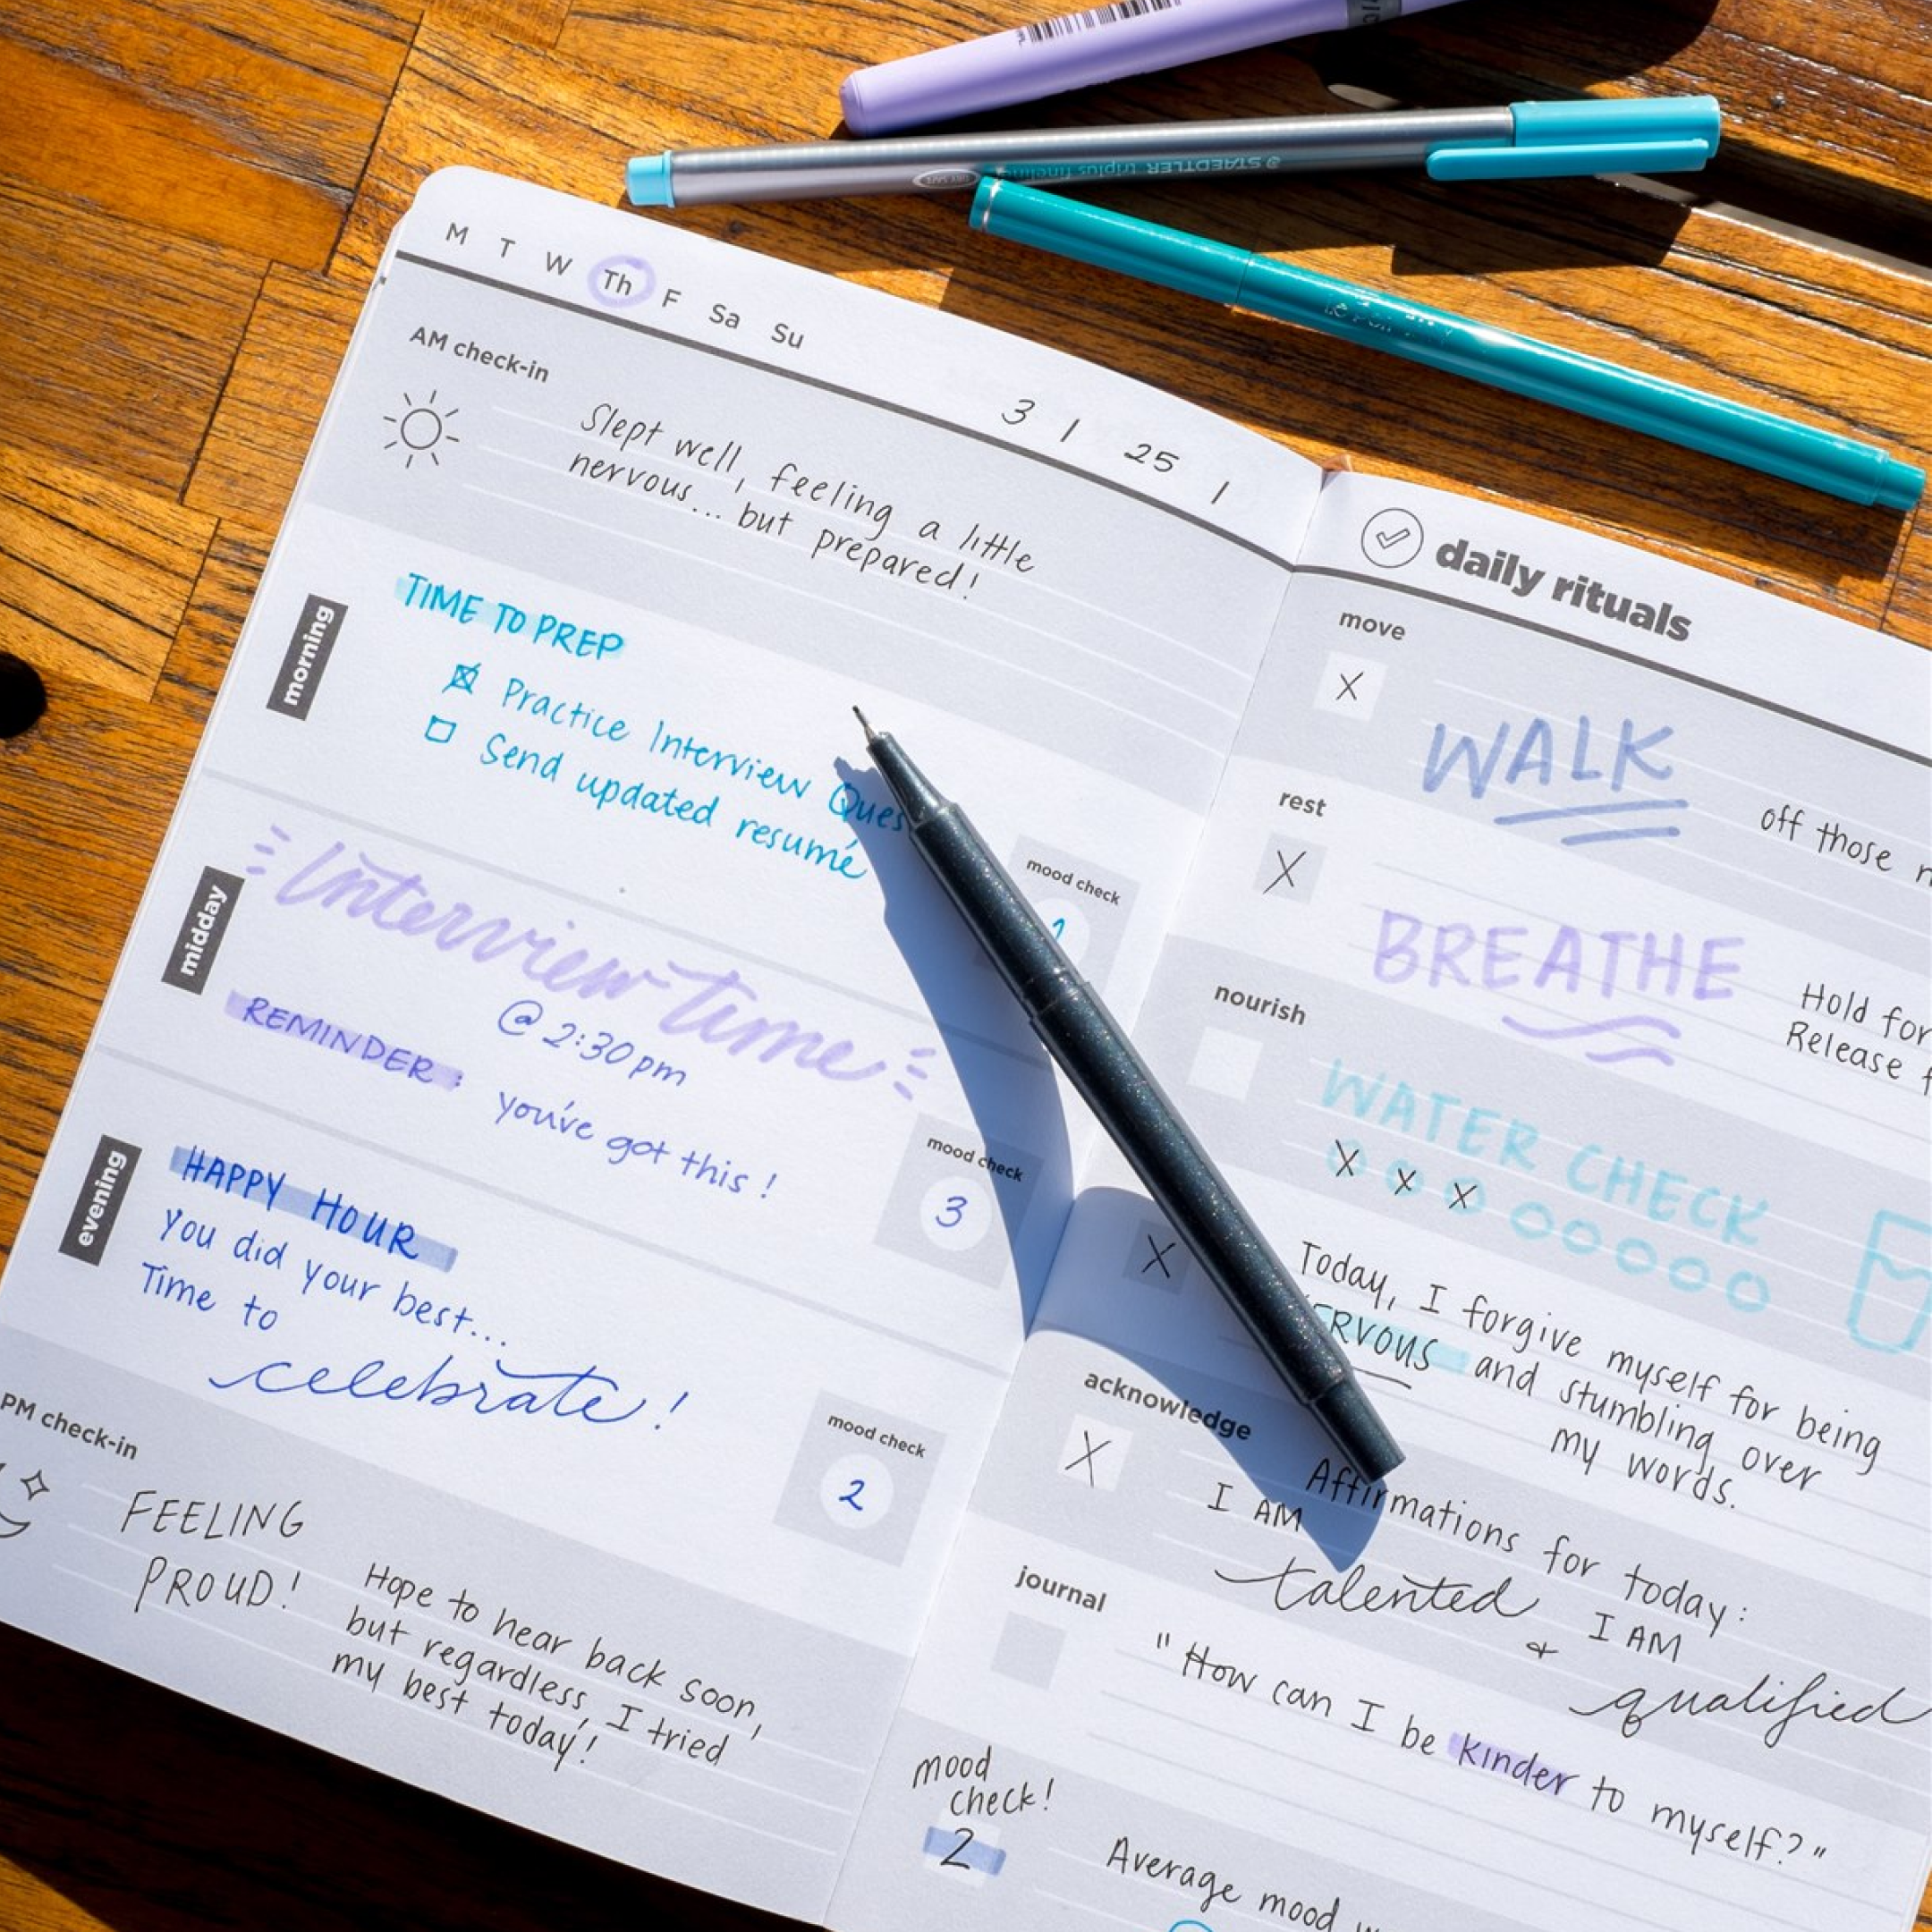 STAEDTLER triplus fineliner
M T W Th F Sa Su
3 / 25 /
AM check-in
Slept well, feeling a little
nervous... but prepared!
morning
TIME TO PREP
Practice Interview Ques
Send updated resumé
mood check
midday
Interview time
@ 2:30pm
REMINDER: you've got this!
mood check
3
evening
HAPPY HOUR
You did your best...
Time to
celebrate!
mood check
2
PM check-in
FEELING
PROUD!
Hope to hear back soon,
but regardless, I tried
my best today!
daily rituals
move
X
WALK
off those
rest
X
BREATHE
Hold for
Release
nourish
WATER CHECK
X X X
X
Today, I forgive myself for being
ERVOUS and stumbling over
my words.
acknowledge
X
Affirmations for today:
I AM
talented
& I AM
qualified
journal
"How can I be kinder to myself?"
mood
check!
2
Average mood